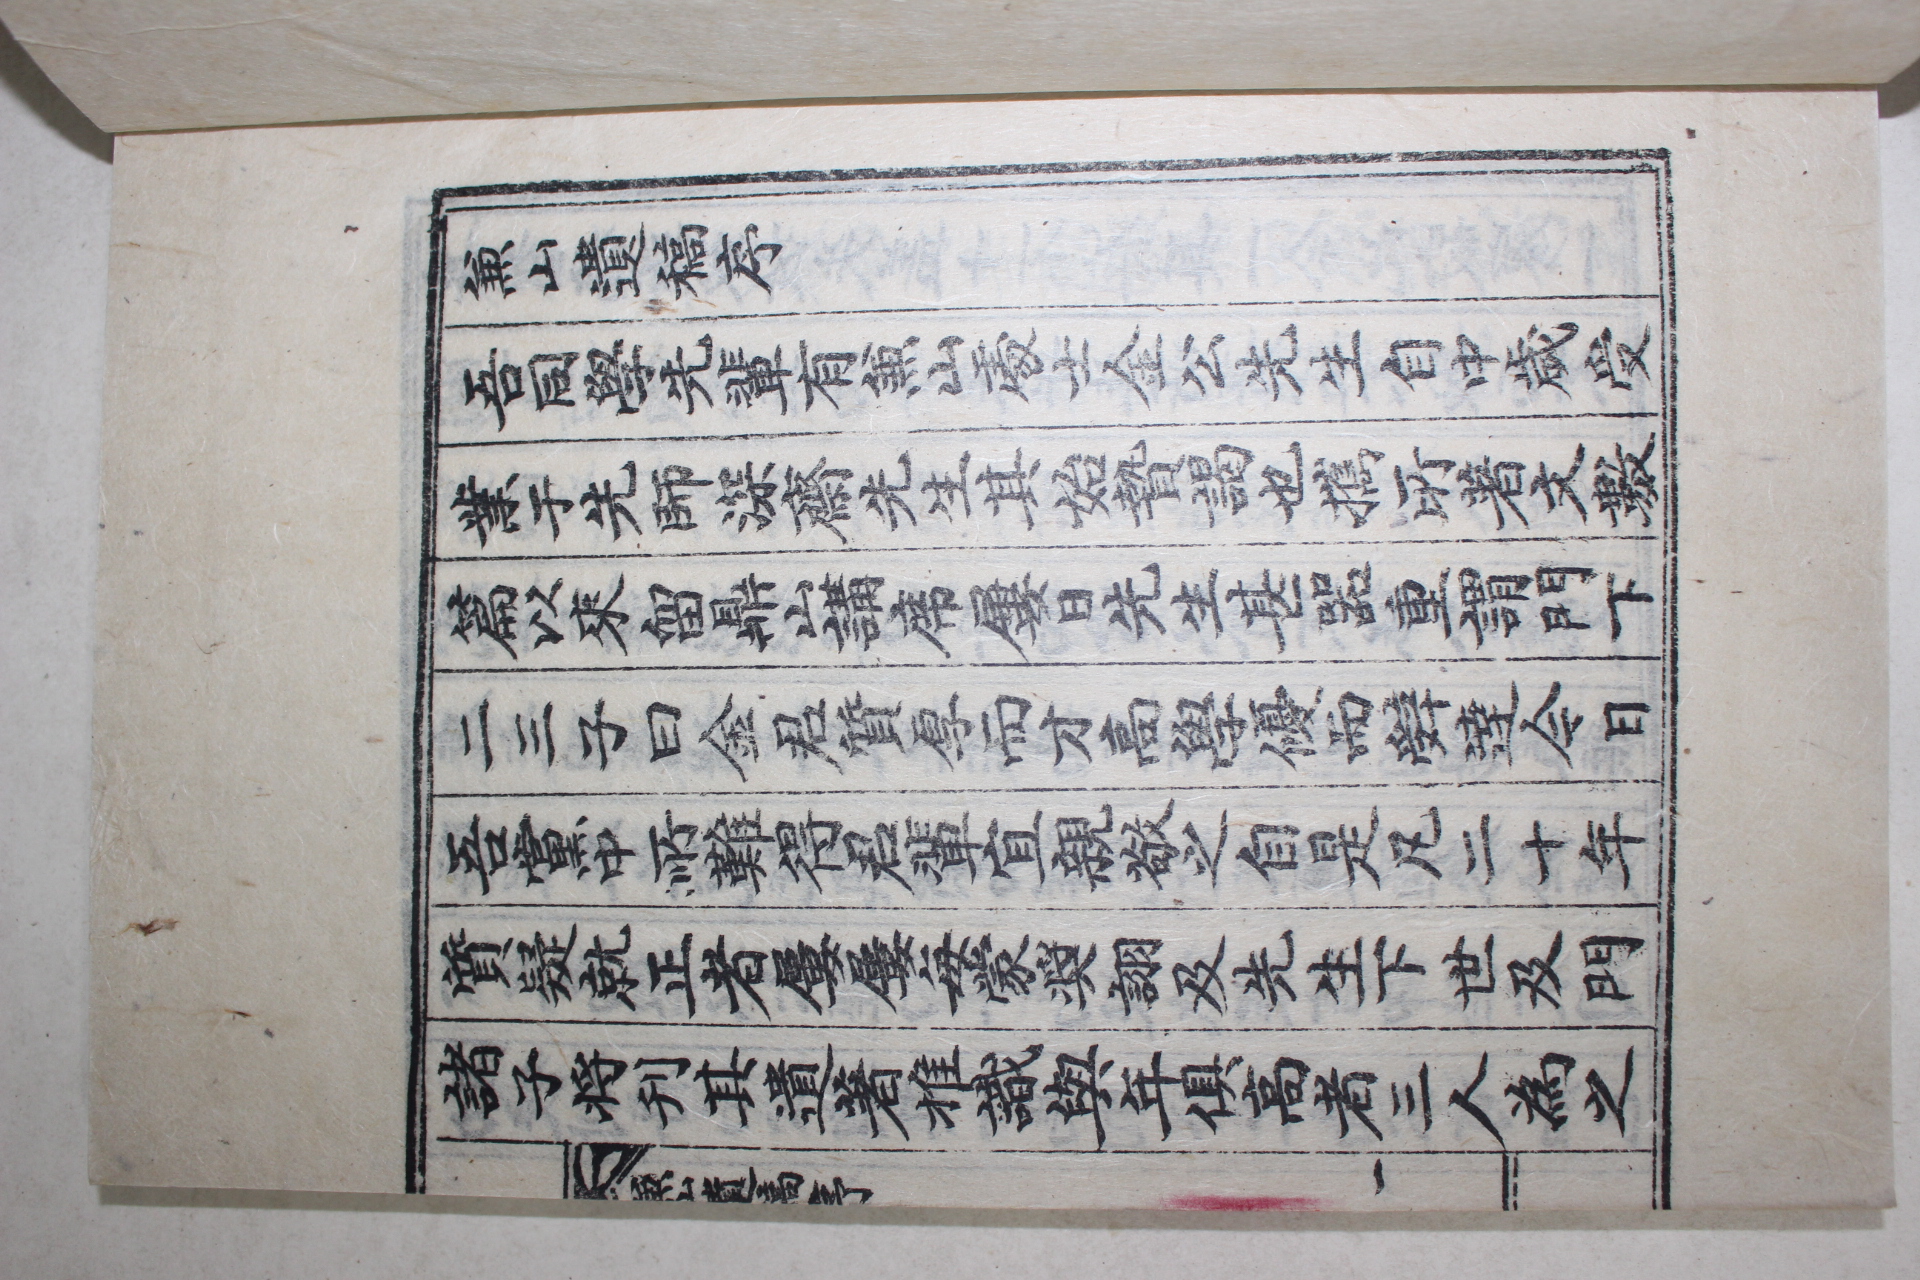 無山遺稿序
吾同學先輩有無山處士金公先生自中歲受
業于先師深齋先生其始贄謁也携所著文數
篇以來留鼎山講席屢日先生甚器重謂門下
二三子曰金君質厚而才高學優而辭達今日
吾黨中所難得君輩宜親敬之自是凡二十年
質疑就正者屢屢每蒙奬詡及先生下世及門
諸子將刊其遺著推識與年俱高者三人爲之
無山遺稿序 一